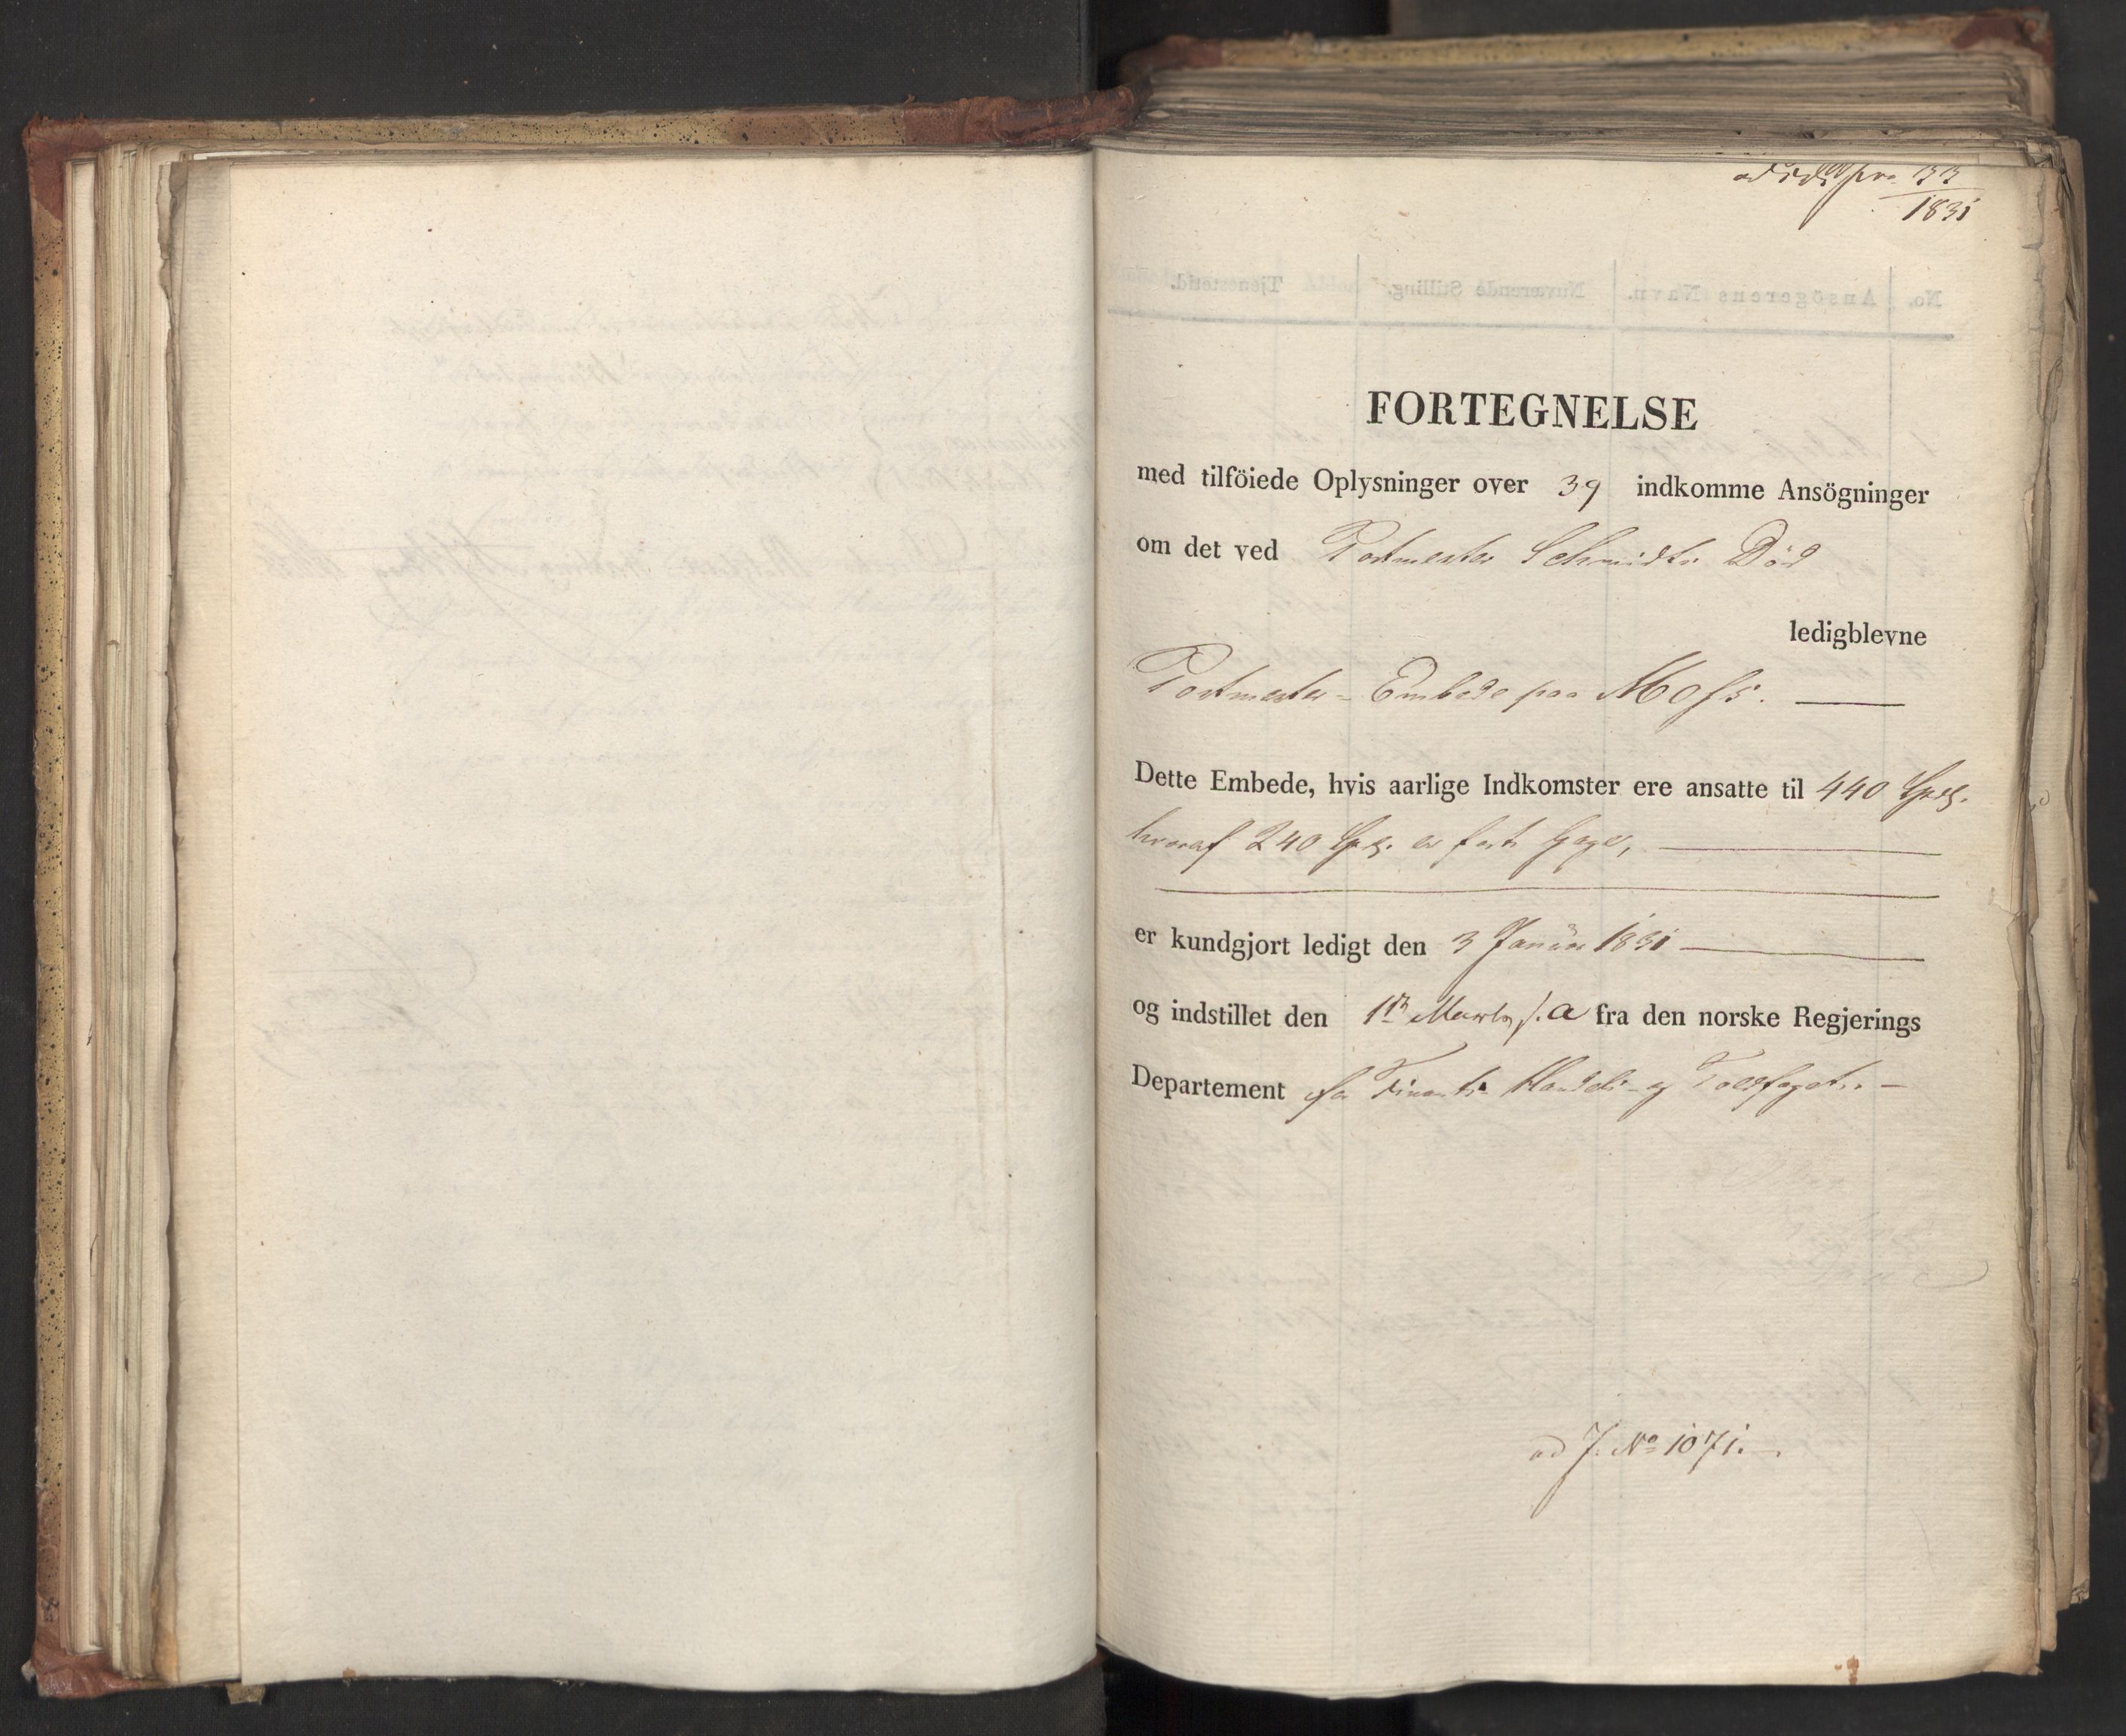 33
1831
FORTEGNELSE
med tilföiede Oplysninger over 39 indkomme Ansögninger
om det ved Postmester Schmidts Död
ledigblevne
Postmester-Embede paa Moss.
Dette Embede, hvis aarlige Indkomster ere ansatte til 440 Spd.
hvoraf 240 Spd. er fast Gage,
er kundgjort ledigt den 3 Januar 1831
og indstillet den 1ste Marts s. a fra den norske Regjerings
Departement for Finants- Handels- og Toldfaget.
ad J. No 1071.